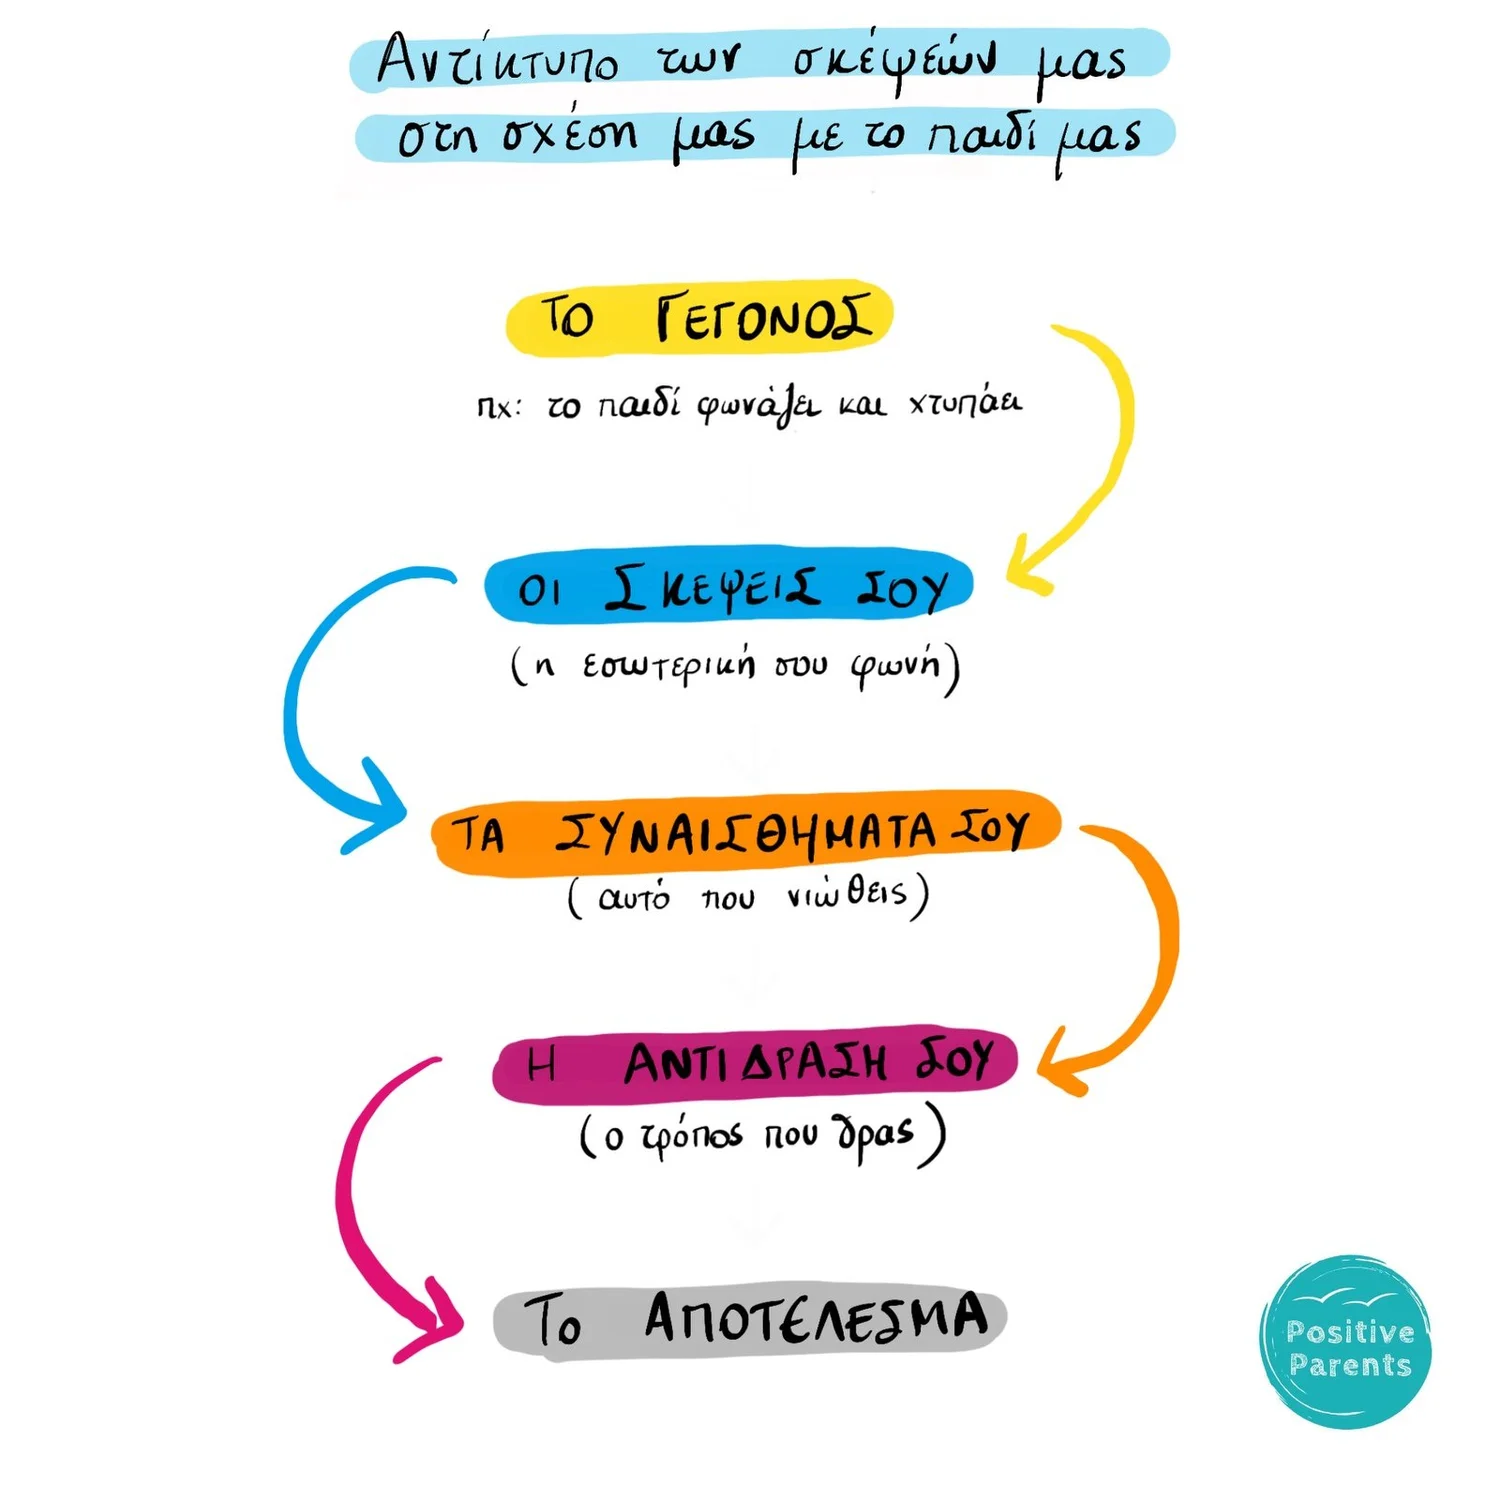 Αντίκτυπο των σκέψεών μας
στη σχέση μας με το παιδί μας
ΤΟ ΓΕΓΟΝΟΣ
πχ: το παιδί φωνάζει και χτυπάει
ΟΙ ΣΚΕΨΕΙΣ ΣΟΥ
(η εσωτερική σου φωνή)
ΤΑ ΣΥΝΑΙΣΘΗΜΑΤΑ ΣΟΥ
(αυτό που νιώθεις)
Η ΑΝΤΙΔΡΑΣΗ ΣΟΥ
(ο τρόπος που δρας)
Το ΑΠΟΤΕΛΕΣΜΑ
Positive
Parents